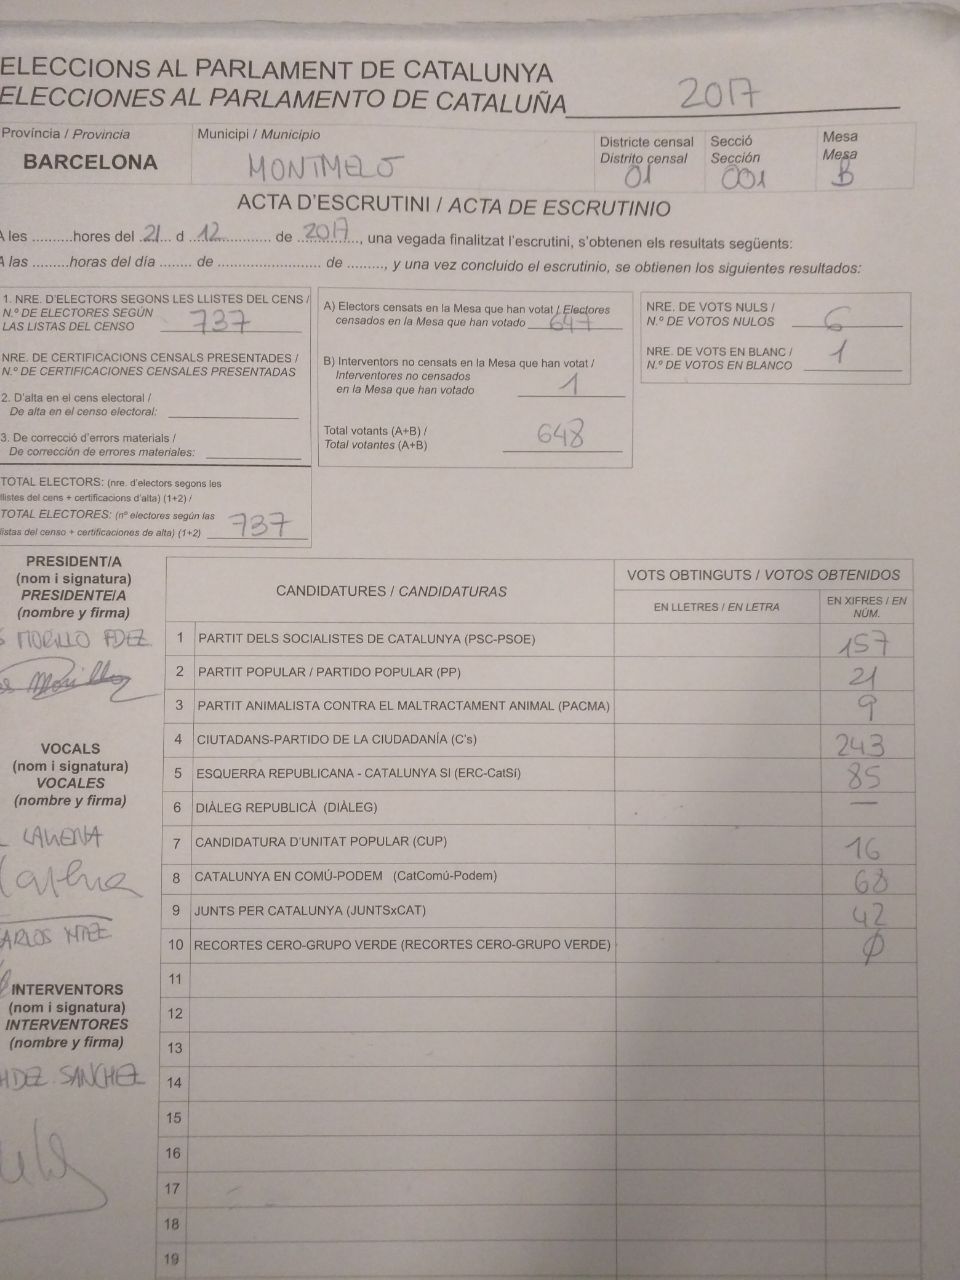 ELECCIONS AL PARLAMENT DE CATALUNYA
ELECCIONES AL PARLAMENTO DE CATALUÑA 2017
Província / Provincia
BARCELONA
Municipi / Municipio
MONTMELO
Districte censal
Distrito censal
01
Secció
Sección
001
Mesa
Mesa
B
ACTA D'ESCRUTINI / ACTA DE ESCRUTINIO
A les ..........hores del 21 d 12 de 2017, una vegada finalitzat l'escrutini, s'obtenen els resultats següents:
A las .........horas del día ........ de ......................... de ........., y una vez concluido el escrutinio, se obtienen los siguientes resultados:
1. NRE. D'ELECTORS SEGONS LES LLISTES DEL CENS /
N.º DE ELECTORES SEGÚN
LAS LISTAS DEL CENSO 737
NRE. DE CERTIFICACIONS CENSALS PRESENTADES /
N.º DE CERTIFICACIONES CENSALES PRESENTADAS
2. D'alta en el cens electoral /
De alta en el censo electoral:
3. De correcció d'errors materials /
De corrección de errores materiales:
TOTAL ELECTORS: (nre. d'electors segons les
llistes del cens + certificacions d'alta) (1+2) /
TOTAL ELECTORES: (nº electores según las
listas del censo + certificaciones de alta) (1+2) 737
A) Electors censats en la Mesa que han votat / Electores
censados en la Mesa que han votado 647
B) Interventors no censats en la Mesa que han votat /
Interventores no censados
en la Mesa que han votado 1
Total votants (A+B) /
Total votantes (A+B) 648
NRE. DE VOTS NULS /
N.º DE VOTOS NULOS 6
NRE. DE VOTS EN BLANC /
N.º DE VOTOS EN BLANCO 1
PRESIDENT/A
(nom i signatura)
PRESIDENTE/A
(nombre y firma)
MORILLO FDEZ.
VOCALS
(nom i signatura)
VOCALES
(nombre y firma)
INTERVENTORS
(nom i signatura)
INTERVENTORES
(nombre y firma)
HDEZ. SANCHEZ
CANDIDATURES / CANDIDATURAS
VOTS OBTINGUTS / VOTOS OBTENIDOS
EN LLETRES / EN LETRA
EN XIFRES / EN NÚM.
1 PARTIT DELS SOCIALISTES DE CATALUNYA (PSC-PSOE) 157
2 PARTIT POPULAR / PARTIDO POPULAR (PP) 21
3 PARTIT ANIMALISTA CONTRA EL MALTRACTAMENT ANIMAL (PACMA) 9
4 CIUTADANS-PARTIDO DE LA CIUDADANÍA (C's) 243
5 ESQUERRA REPUBLICANA - CATALUNYA SI (ERC-CatSí) 85
6 DIÀLEG REPUBLICÀ (DIÀLEG) —
7 CANDIDATURA D'UNITAT POPULAR (CUP) 16
8 CATALUNYA EN COMÚ-PODEM (CatComú-Podem) 68
9 JUNTS PER CATALUNYA (JUNTSxCAT) 42
10 RECORTES CERO-GRUPO VERDE (RECORTES CERO-GRUPO VERDE) Ø
11
12
13
14
15
16
17
18
19